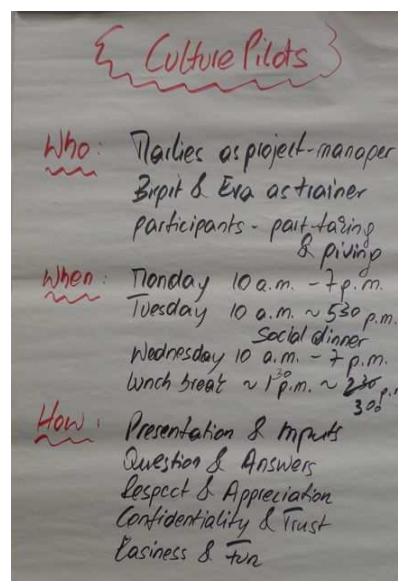 Culture Pilots
Who: Marlies as project-manager
Birgit & Eva as trainer
participants - part-taking
& giving
When: Monday 10 a.m. - 7 p.m.
Tuesday 10 a.m. ~ 530 p.m.
Social dinner
Wednesday 10 a.m. - 7 p.m.
Lunch break ~ 130 p.m. ~ 230 p.m.
300
How: Presentation & Inputs
Question & Answers
Respect & Appreciation
Confidentiality & Trust
Easiness & Fun